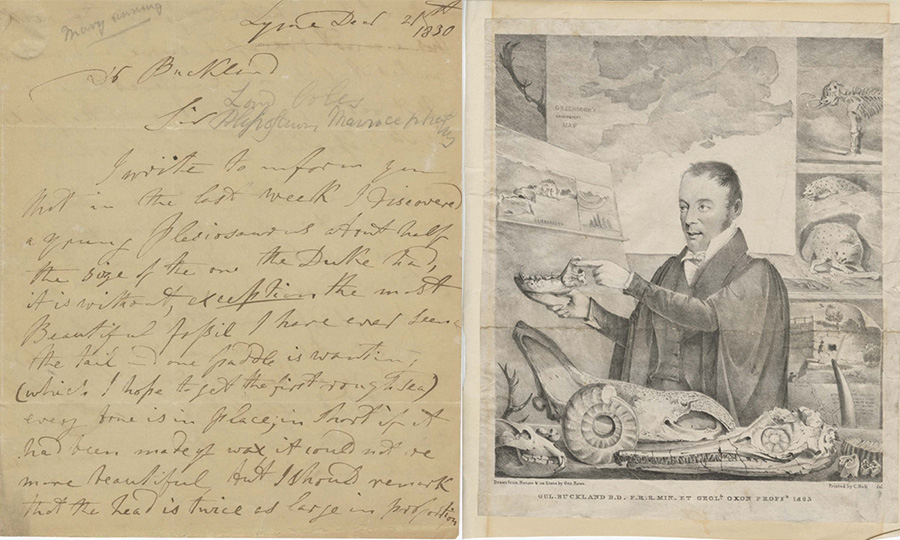 Mary Anning
Lyme Decr 21st
1830
Dr Buckland
Lord Coles
Sir Plesiosaurus Macrocephalus
I write to inform you
that in the last week I discovered
a young Plesiosaurus about half
the size of the one the Duke had,
it is without, exception the most
Beautiful fossil I have ever seen
the tail and one paddle is wanting
(which I hope to get the first rough sea)
every bone is in place, in short if it
had been made of wax it could not be
more beautiful but I should remark
that the head is twice as large in proportion
GREENOUGH'S
MAP
Drawn from Nature & on Stone by Geo. Rowe
Printed by C. Hull
GUL. BUCKLAND B.D. F.R.S. MIN. ET GEOL. OXON PROFFR 1823